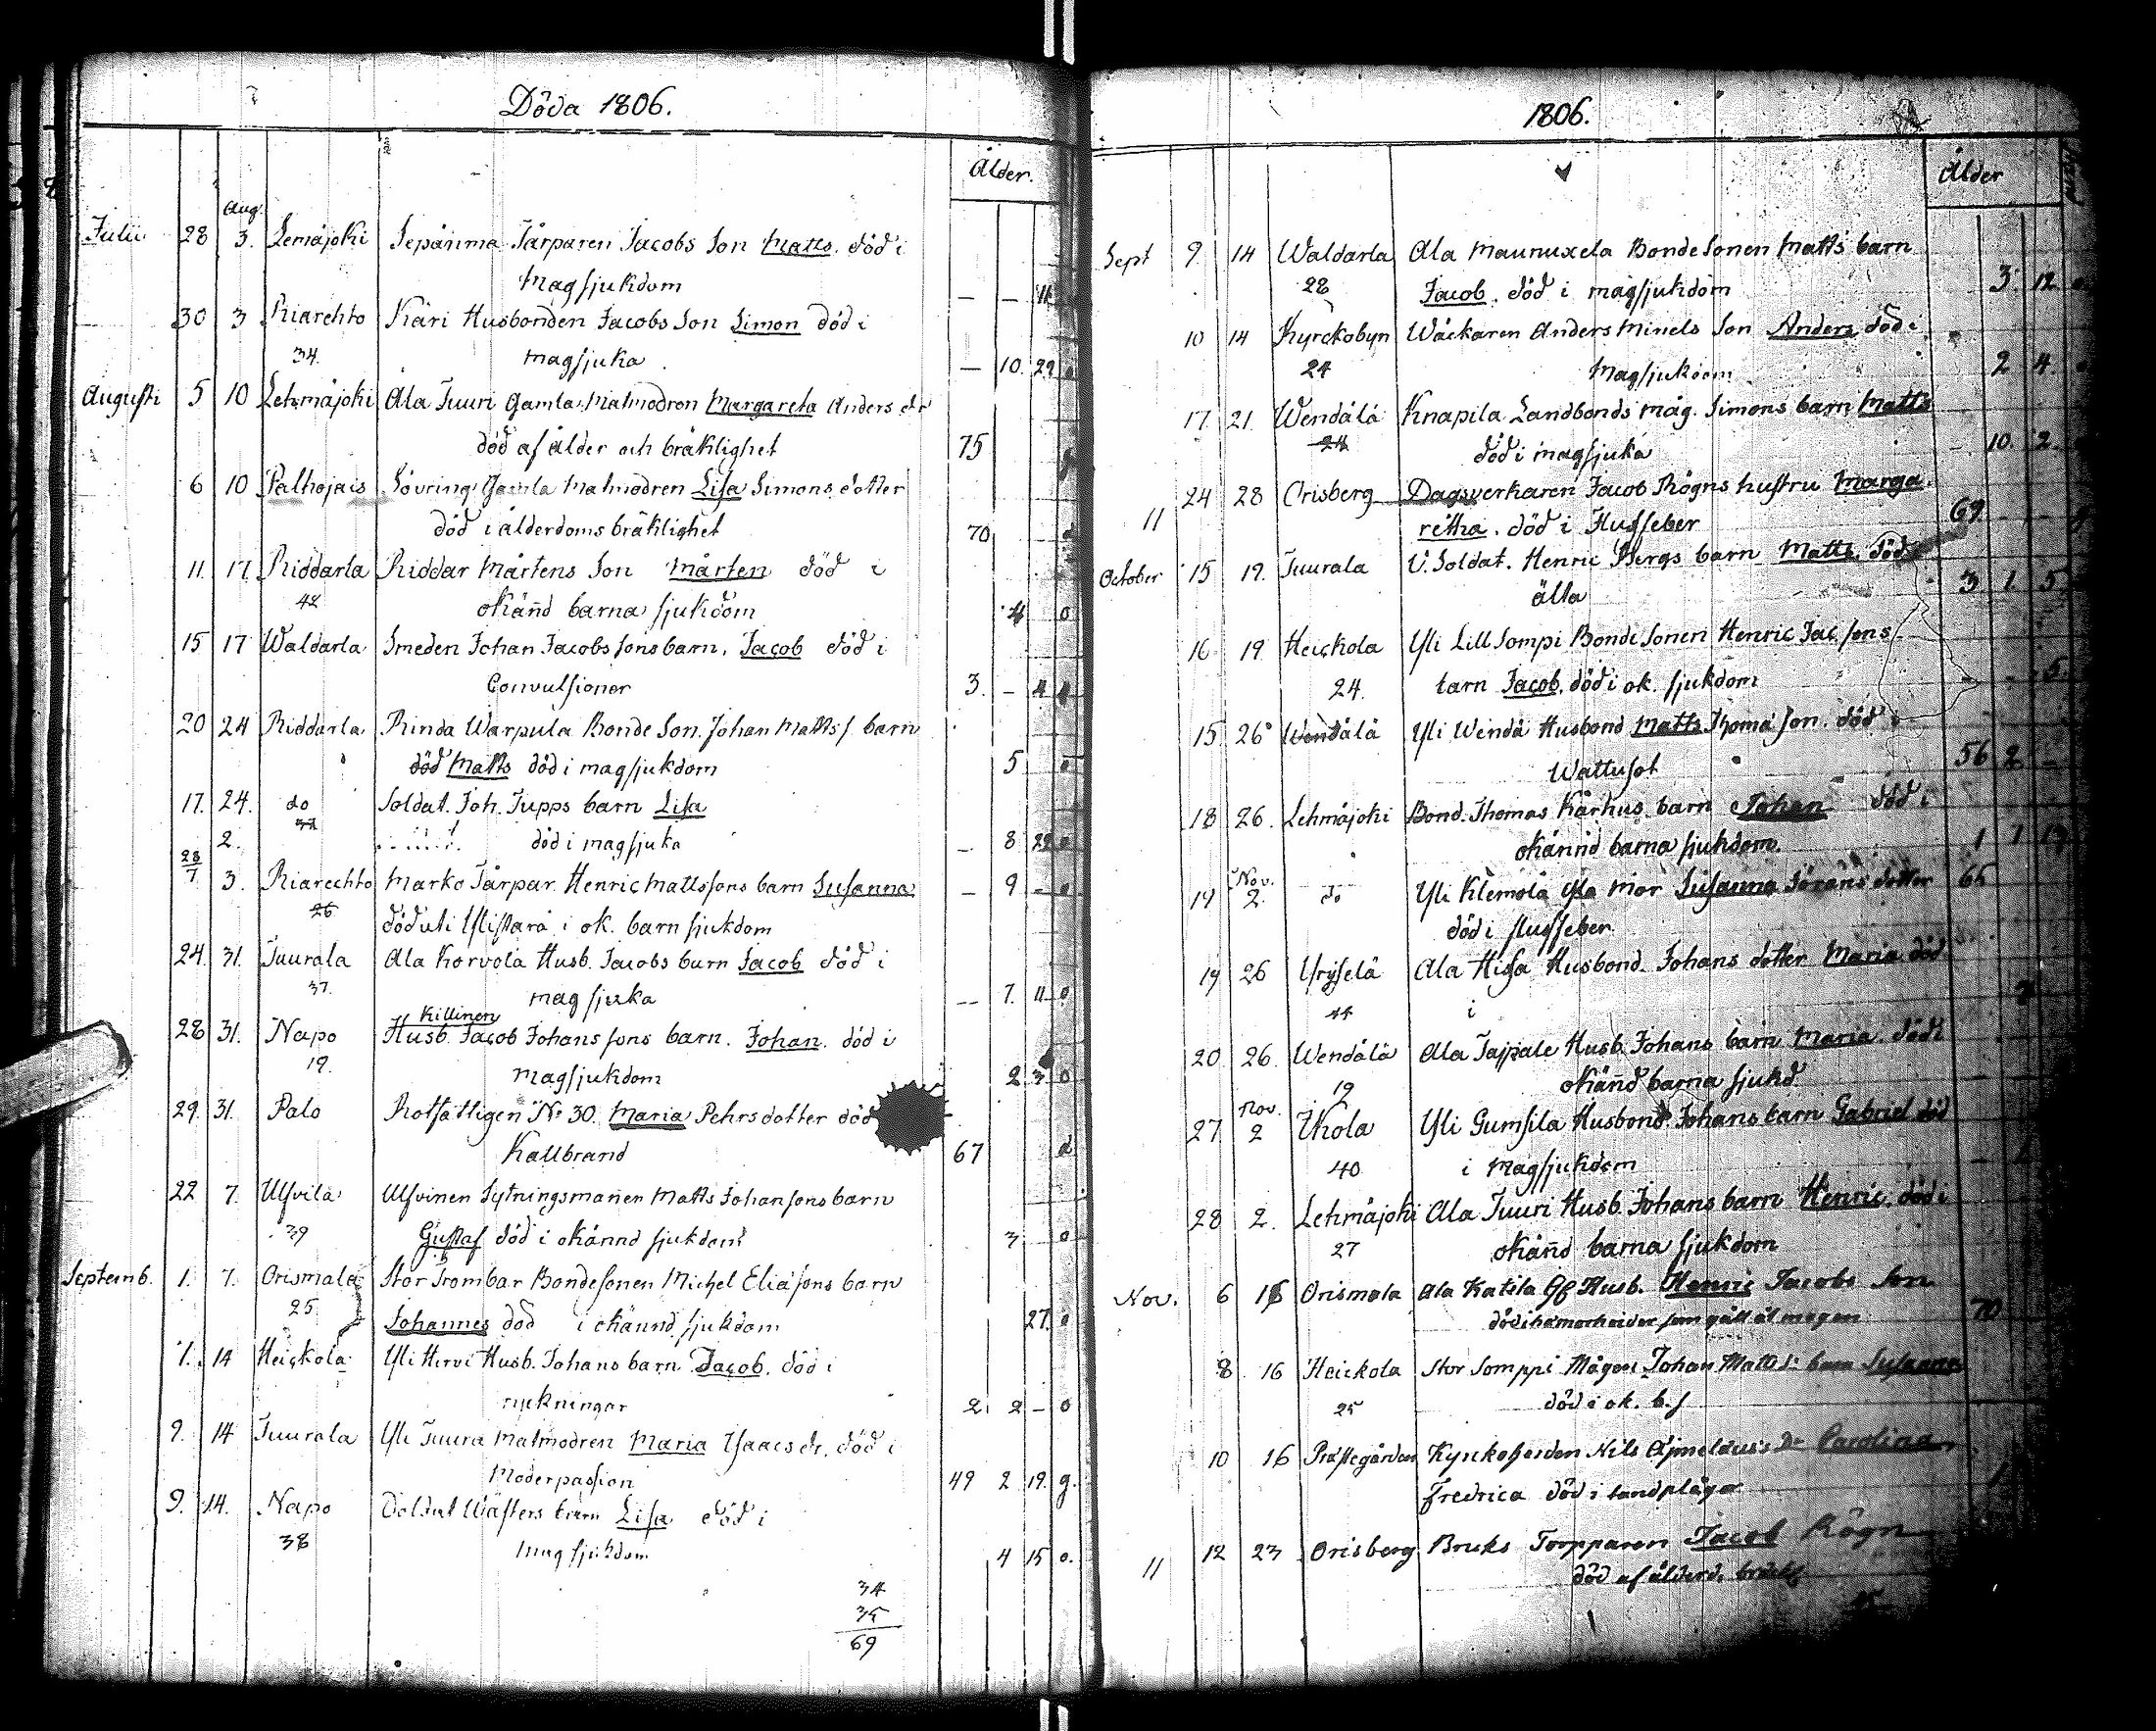 Döda 1806.
Ålder.
Aug.
Julii 28 3. Lemåjoki Sepänma Tårparen Jacobs Son Matts. död i
magsjukdom — — 11
30 3 Kiarehto Kåri Husbonden Jacobs Son Simon död i
34. magsjuka — 10. 29
Augusti 5 10 Lehmåjoki Ala Juuri Gamla Matmodron Margareta Anders dr
död af ålder och bräklighet 75
6 10 Palhojais Sövring Gamla Matmodren Lisa Simons dotter
död i ålderdoms bräklighet 70
11. 17. Riddarla Riddar Mårtens Son Mårten död i
42 okänd barna sjukdom 4 0
15 17 Waldarla Smeden Johan Jacobs sons barn, Jacob död i
Convulsioner 3. — 4
20 24 Riddarla Rinda Warpula Bonde Son. Johan Matts s. barn
död Matts död i magsjukdom 5
17. 24. do Soldat. Joh. Jupps barn Lisa
2. död i magsjuka — 8 22
28/7 3. Kiarechto Marko Tårpar. Henric Mattssons barn Susanna — 9 —
26 död uti Ylistaro i ok. barn sjukdom
24. 31. Tuurala Ala Korvola Husb. Jacobs barn Jacob död i
37. magsjuka — 7. 11 0
Killinen
28 31. Napo Husb. Jacob Johans sons barn. Johan. död i
19. magsjukdom 2 3 0
29. 31. Palo Rotfattigen No 30. Maria Pehrs dotter död
Kallbrand 67
22 7. Ulfvila Ulfvinen Sytningsmañen Matts Johansons barn
39 Gustaf död i okännd sjukdom 3 0
Septemb. 1. 7. Orismala Stor Trombar Bondesonen Michel Eliasons barn
25 Johannes död i okännd sjukdom 27. 0
7. 14 Heickola Yli Hirvi Husb. Johans barn Jacob. död i
ryckningar 2. 2 — 0
9. 14 Tuurala Yli Tuura Matmodren Maria Isaacs dr. död i
Moderpassion 49 2 19. g.
9. 14. Napo Soldat Wästers barn Lisa död i
38 magsjukdom 4 15 0.
34
35
69
1806.
Ålder
Sept 9. 14 Waldarla Ala Maunuxela Bonde Sonen Matts barn
28 Jacob. död i magsjukdom 3 12
10 14 Kyrckobyn Wäckaren Anders Minels Son Anders död i
24 Magsjukdom 2 4
17. 21. Wendälä Knapila Landbonds måg. Simons barn Matts
24 död i magsjuka 10. 2
24 28 Orisberg Dagsverkaren Jacob Rögns hustru Marga
11 retha. död i Flussfeber 69. — —
October 15 19. Tuurala V. Soldat. Henric Bergs barn Matts. död
älta 3 1 5
16 19. Heickola Yli Lill Sompi Bonde Sonen Henric Jac. sons
24. barn Jacob. död i ok. sjukdom — — 5.
15. 26 Wendälä Yli Wendä Husbond Matts Thoma Son. död i
Wattusot 56 2 —
18 26. Lehmåjoki Bond. Thomas Karhus. barn Johan död i
okännd barna sjukdom. 1 7
Nov.
19 2. do Yli Klemola gla Mor Susanna Görans dotter 65
död i flussfeber.
19 26 Ala Hissa Husbond. Johans dotter Maria död
i
20 26. Wendälä Ala Taipale Husb. Johans barn Maria. död i
19 okänd barna sjukd.
Nov.
27 2 Ikola Yli Gumsila Husbond. Johans barn Gabriel död
40 i Magsjukdom
28 2. Lehmåjoki Ala Juuri Husb. Johans barn Henric. död i
27 okänd barna sjukdom
Nov. 6 16 Orismala Ala Katila Gf Husb. Henric Jacobs Son
död i hämorhoider som gått åt magen 70
8 16 Heickola Stor Somppi Mågen Johan Matts s. barn Susanna
25 död i ok. b. s
10 16 Prästegården Kyrkoherden Nils Dr Carolina
Fredrica död i tandplågor 1
12 23 Orisberg Bruks Torpparen Jacob Rögn
11 död af ålderd. bräckl